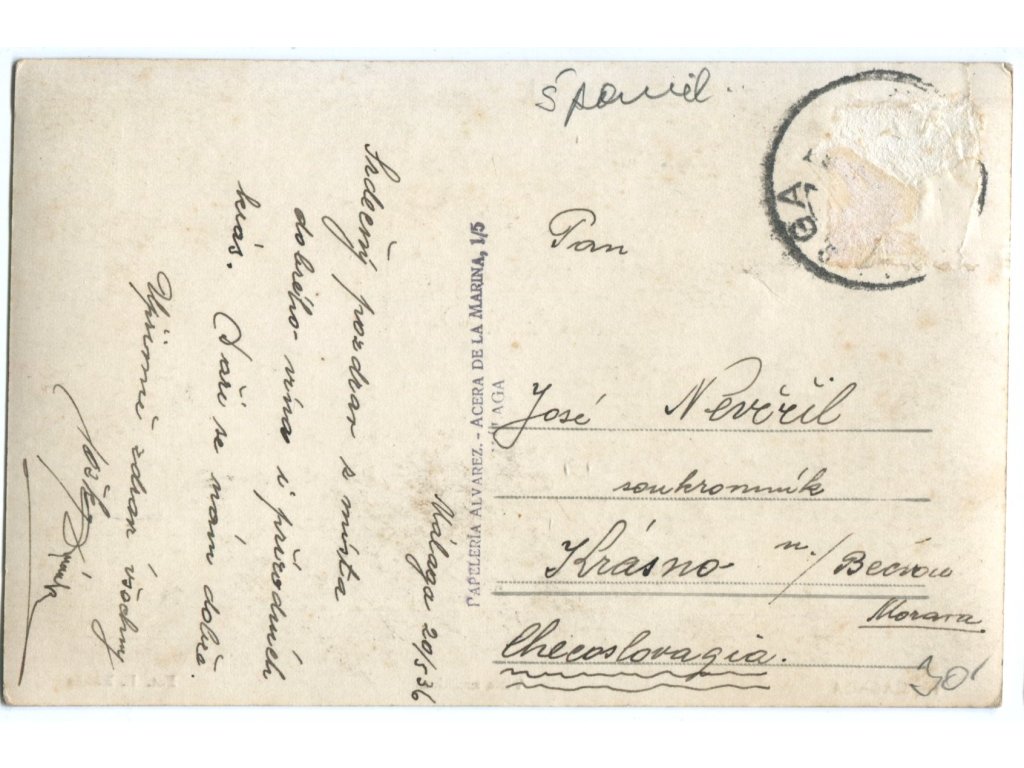 Španěl.
Málaga 20/5 36
Srdečný pozdrav s místa
dobrého vína i přírodních
krás. Daří se nám dobře.
Upřímně zdraví všechny
PAPELERÍA ALVAREZ. - ACERA DE LA MARINA, 1/5
LAGA
GA
Pan
José Nevřčil
soukromník
Krásno n./Bečvou
Morava.
Checoslovaqia.
30'